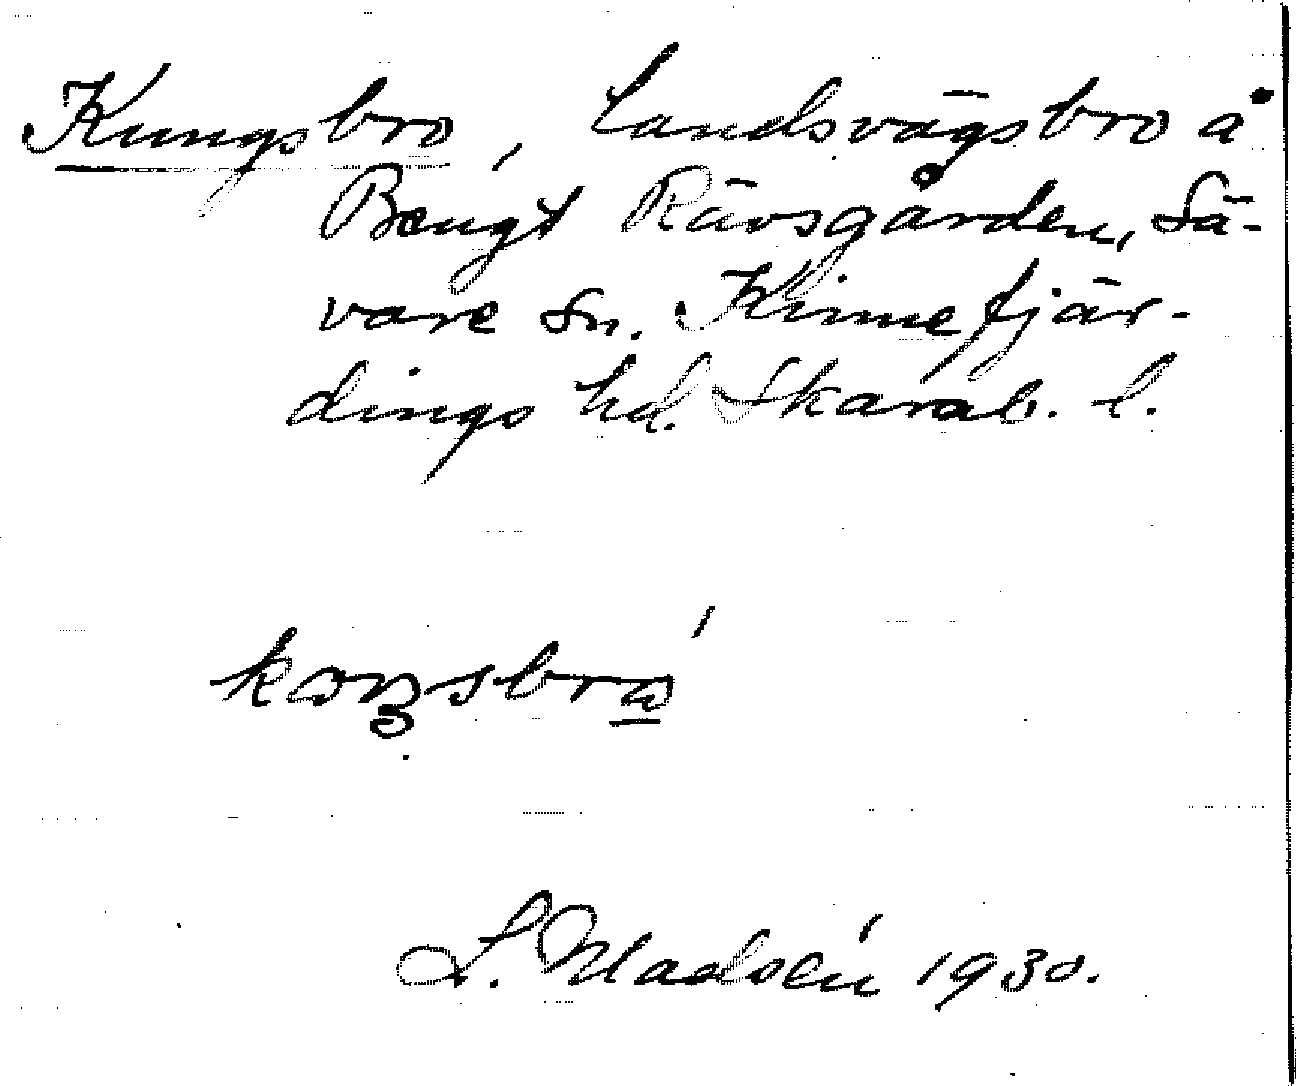 Kungsbro, Landsvägsbro å
Bengt Rävsgården, Sä-
vare Sn. Kinnefjär-
dings hd. Skarab. l.
L. Madsén 1930.